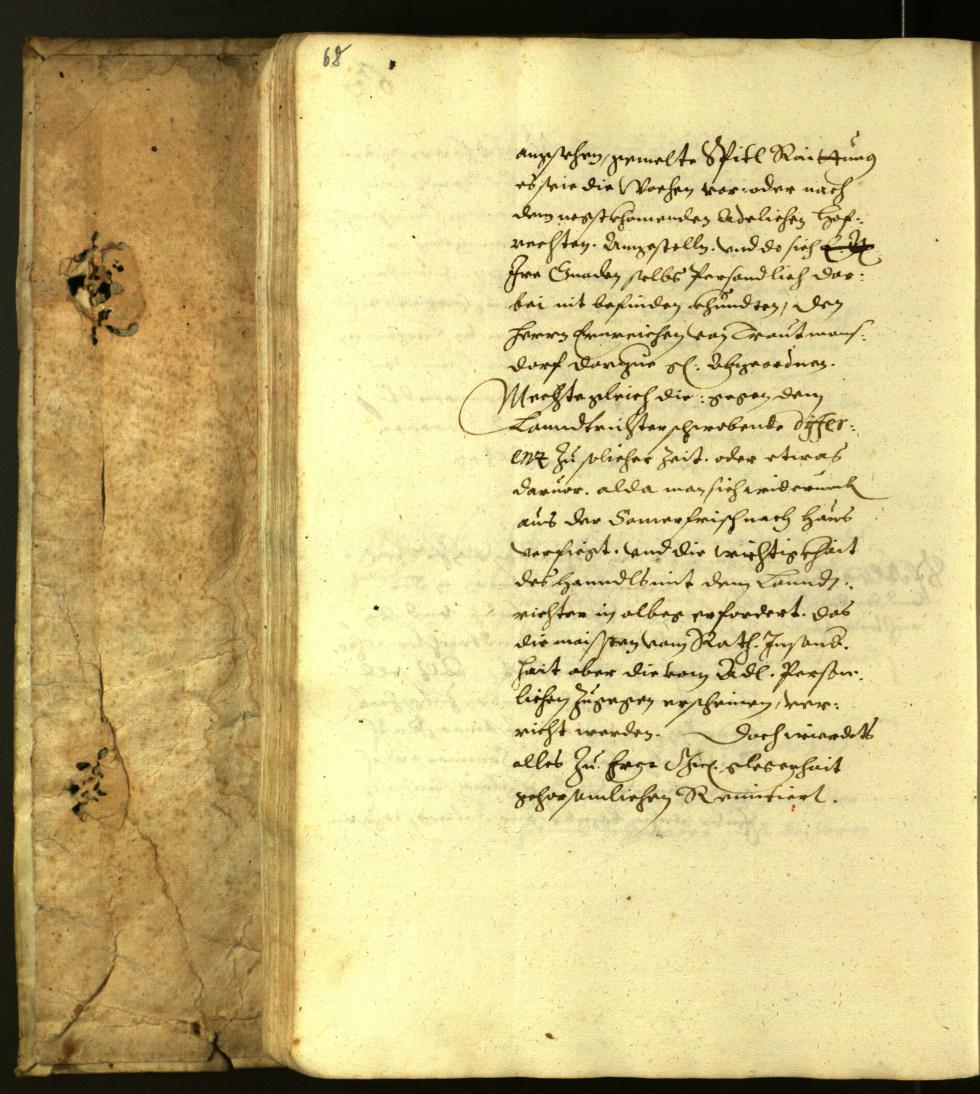 68
angesehen, gemelte Spitl Raittung
es seie die Wochen vor: oder nach
dem negstkhomenden Adelichen Hof:
rechten. Angestelln. und do sich
Ire Gnaden selbs Persondlich dar:
bei nit befinden khundten, den
Herrn Ernreichen von Trautmans:
dorf darzue gl: Abgeordnen.
Mechte gleich die: gegen dem
Lanndtrichter schwebende differ:
enz zu solicher Zeit. oder etwas
daruor. alda man sich widerumb
aus der Somerfrisch nach Haus
verfiegt. und die wichtigkhait
des Hanndls mit dem Lanndt:
richter in albeg erfordert. das
die maisten vom Rath. Insonn:
hait aber die vom Adl. Person:
lichen zugegen erscheinen, ver:
richt werden. Doch wierdets
alles zu Irer gelegenhait
gehorsamlichen Remitiert.